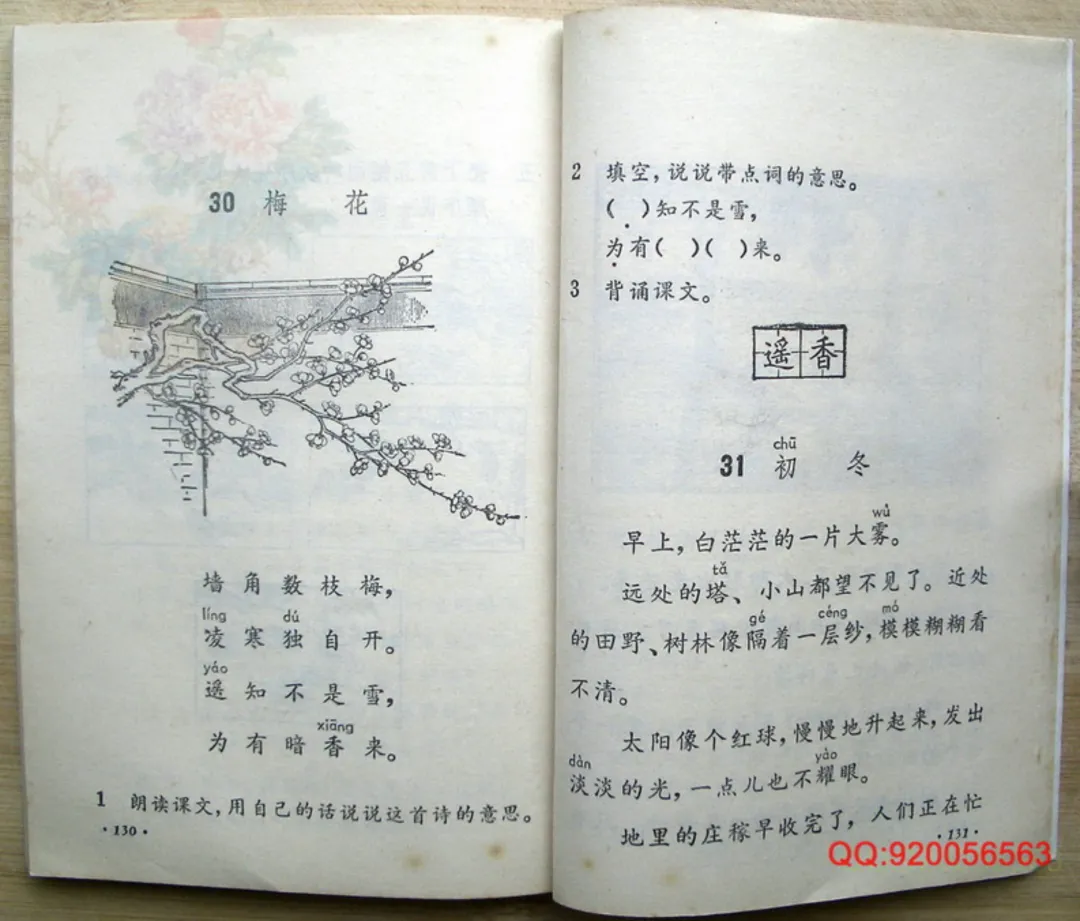 30 梅 花
墙角数枝梅，
líng dú
凌寒独自开。
yáo
遥知不是雪，
xiāng
为有暗香来。
1 朗读课文，用自己的话说说这首诗的意思。
·130·
2 填空，说说带点词的意思。
( )知不是雪，
为有( )( )来。
3 背诵课文。
遥香
chū
31 初 冬
wù
早上，白茫茫的一片大雾。
tǎ
远处的塔、小山都望不见了。近处
gé céng mó
的田野、树林像隔着一层纱，模模糊糊看
不清。
太阳像个红球，慢慢地升起来，发出
dàn yào
淡淡的光，一点儿也不耀眼。
地里的庄稼早收完了，人们正在忙
·131·
QQ:920056563